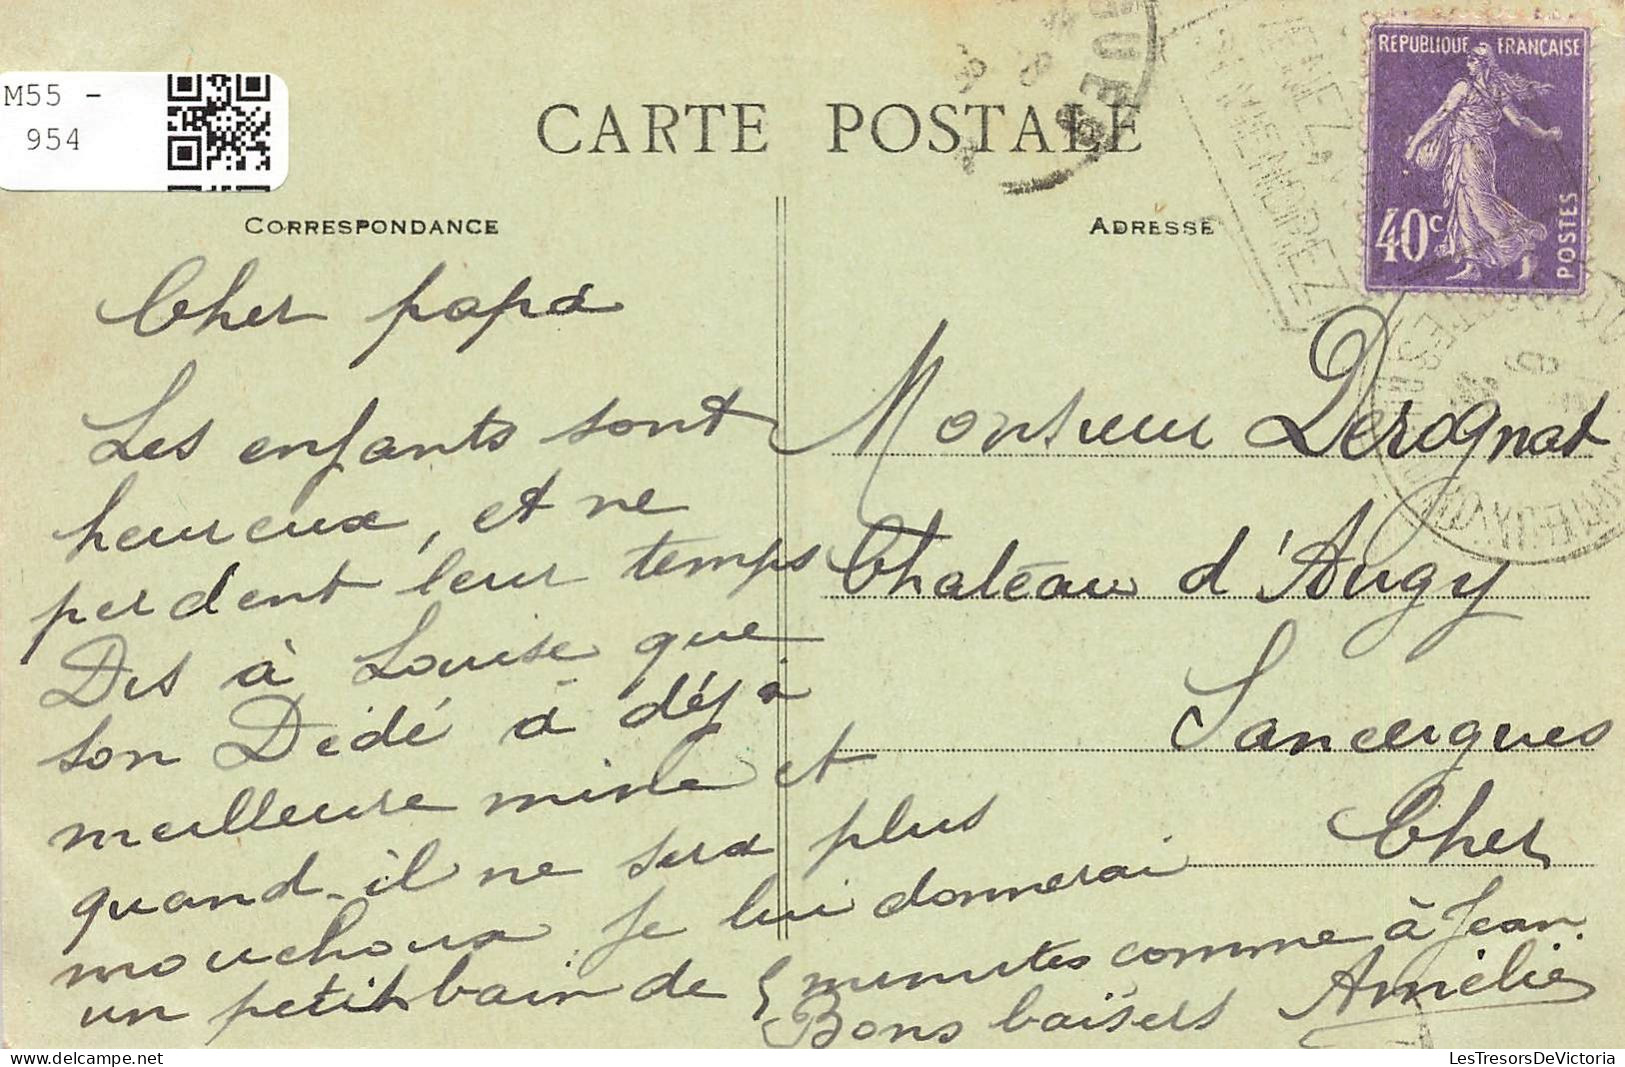 M55 -
954
CARTE POSTALE
REPUBLIQUE FRANÇAISE
40c
POSTES
CORRESPONDANCE
ADRESSE
Cher papa
Les enfants sont
heureux, et ne
perdent leur temps
Dis à Louise que
son Dédé à déjà
meilleure mine et
quand il ne sera plus
mouchoux je lui donnerai
un petit bain de 5 minutes comme à Jean
Bons baïsers Amélie
Monsieur Derognat
Chateau d'Augy
Sancergues
Cher
LesTresorsDeVictoria